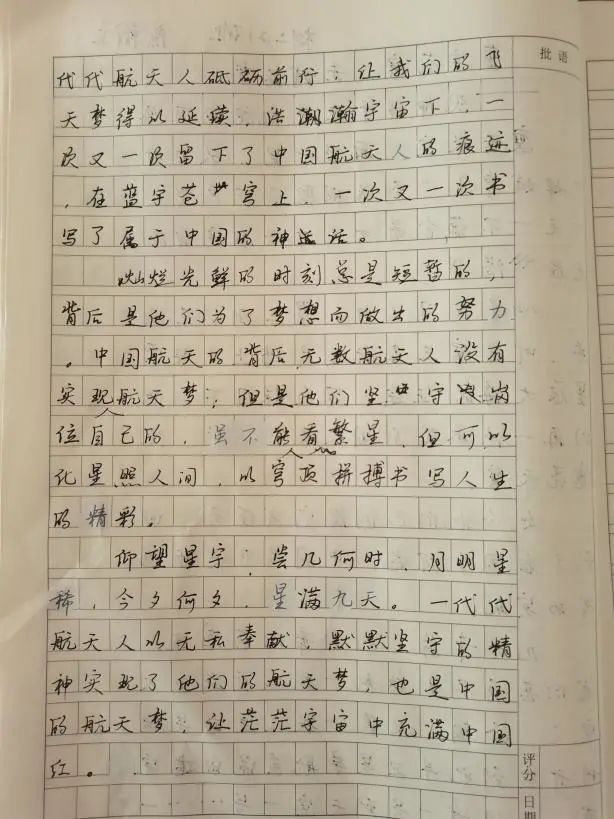 批语
代代航天人砥砺前行，让我们的飞
天梦得以延续，浩瀚宇宙下，一
次又一次留下了中国航天人的痕迹
，在蓝宇苍穹上，一次又一次书
写了属于中国的神话。
灿烂光鲜的时刻总是短暂的，
背后是他们为了梦想而做出的努力
。中国航天的背后，无数航天人没有
实现航天梦，但是他们坚守岗
位自己的，虽不能看繁星，但可以
化星照人间，以穹顶拼搏书写人生
的精彩。
仰望星宇，尝几何时，月明星
稀，今夕何夕，星满九天。一代代
航天人以无私奉献，默默坚守的精
神实现了他们的航天梦，也是中国
的航天梦，让茫茫宇宙中充满中国
红。
评分
日期